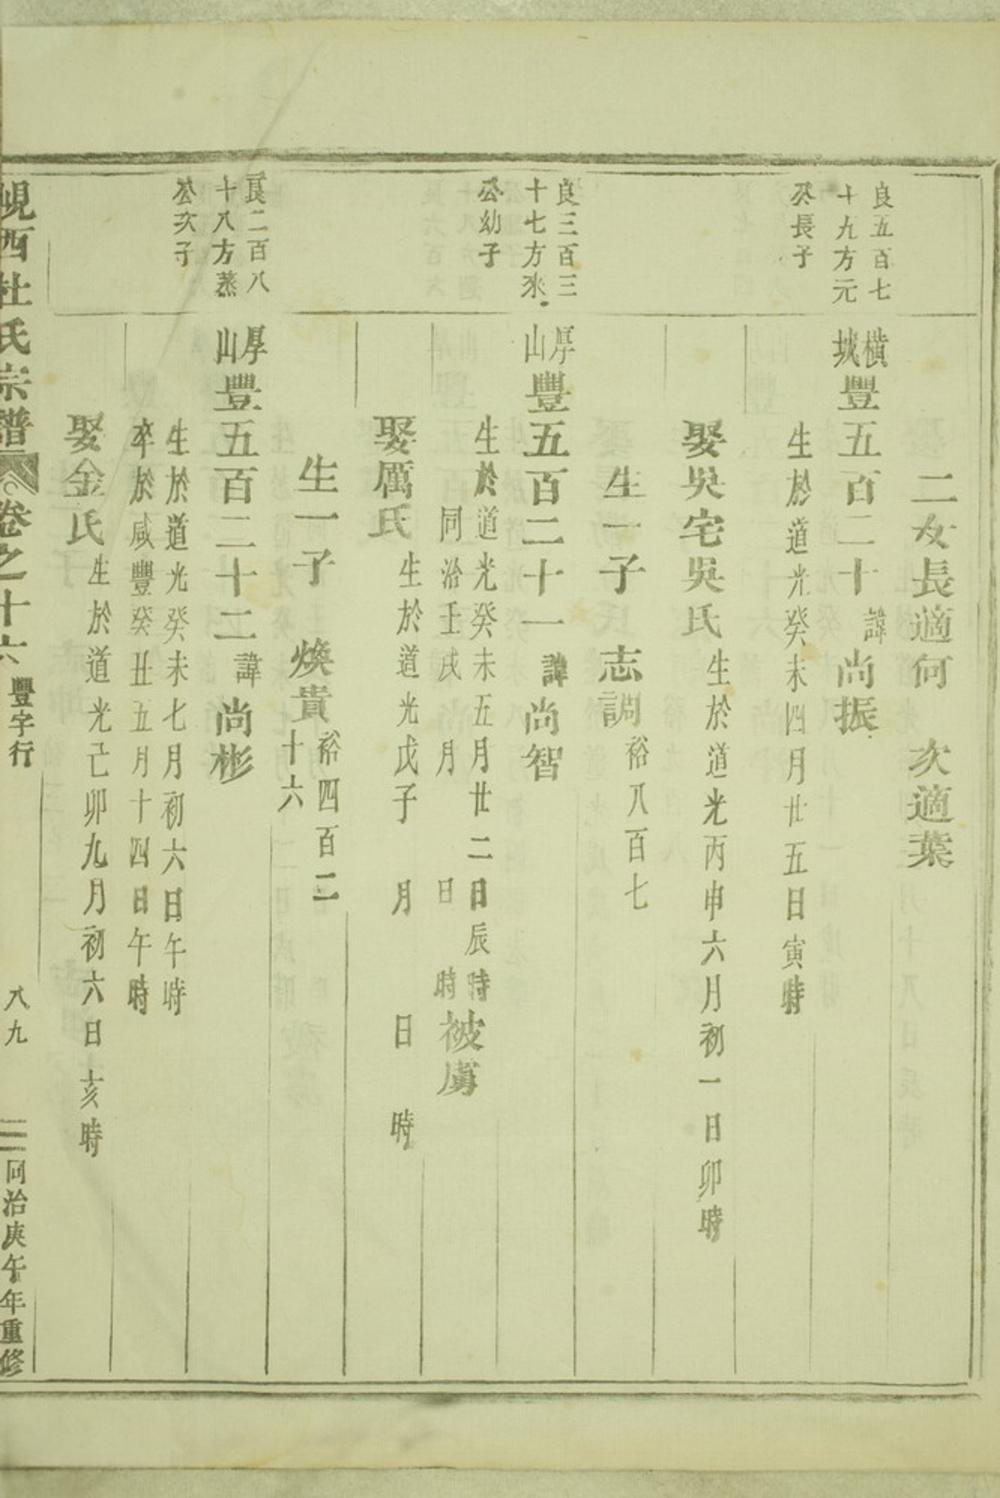 二女長適何　次適葉
良五百七
十九方元
公長子
橫
城
豐五百二十諱尚振
生於道光癸未四月廿五日寅時
娶吳宅吳氏生於道光丙申六月初一日卯時
生一子　志調裕八百七
良三百三
十七方來
公幼子
厚
山
豐五百二十一諱尚智
生於道光癸未五月廿二日辰時
同治壬戌　月　　日　時被虜
娶厲氏生於道光戊子　月　　日　時
生一子　煥貴裕四百二
十六
良二百八
十八方蒸
公次子
厚
山
豐五百二十二諱尚彬
生於道光癸未七月初六日午時
卒於咸豐癸丑五月十四日午時
娶金氏生於道光己卯九月初六日亥時
峴西杜氏宗譜
卷之十六
豐字行
八九
同治庚午年重修